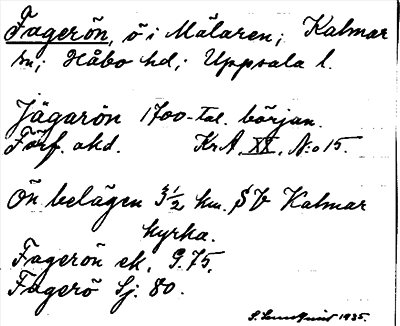 Fagerön, ö i Mälaren; Kalmar
sn; Håbo hd; Uppsala l.
Jägarön 1700-tal. början.
Förf. okd. KrA, XX, N:o 15.
Ön belägen 3 1/2 km. SV Kalmar
kyrka.
Fagerön ek. G. 75,
Fagerö Sj. 80.
1935.